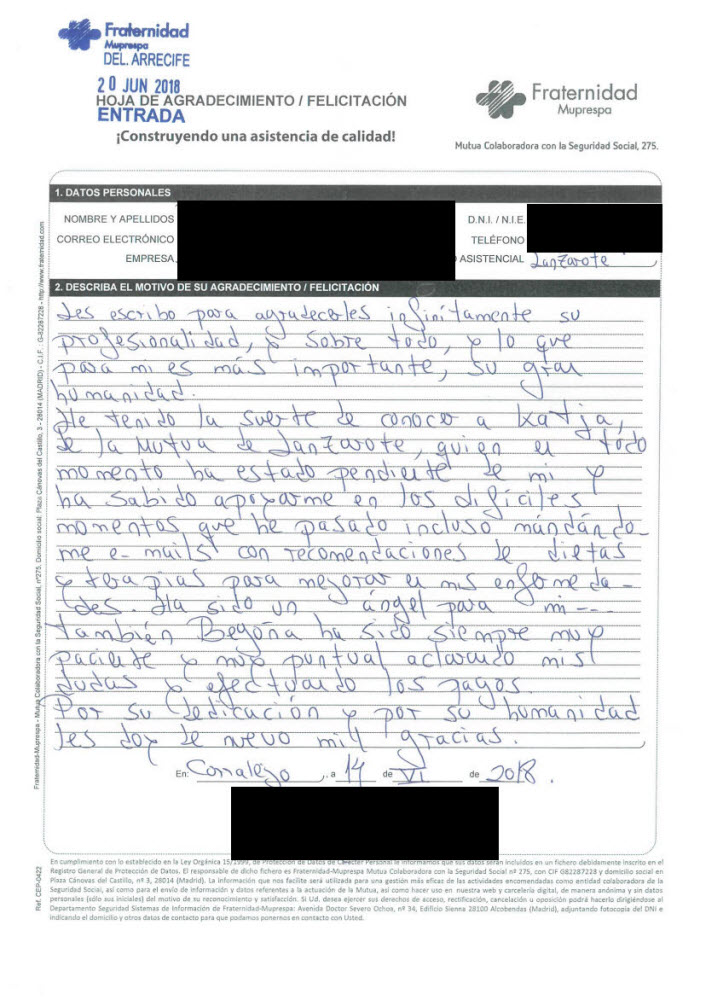 Fraternidad
Muprespa
DEL. ARRECIFE
20 JUN 2018
HOJA DE AGRADECIMIENTO / FELICITACIÓN
ENTRADA
¡Construyendo una asistencia de calidad!
Fraternidad
Muprespa
Mutua Colaboradora con la Seguridad Social, 275.
1. DATOS PERSONALES
NOMBRE Y APELLIDOS
D.N.I. / N.I.E.
CORREO ELECTRÓNICO
TELÉFONO
EMPRESA
ASISTENCIAL Lanzarote
2. DESCRIBA EL MOTIVO DE SU AGRADECIMIENTO / FELICITACIÓN
Les escribo para agradecerles infinitamente su
profesionalidad, y sobre todo, y lo que
para mi es más importante, su gran
humanidad.
He tenido la suerte de conocer a Katja,
de la Mutua de Lanzarote, quien en todo
momento ha estado pendiente de mi y
ha sabido apoyarme en los difíciles
momentos que he pasado incluso mandándo-
me e-mails con recomendaciones de dietas
y terapias para mejorar en mis enfermeda-
des. Ha sido un ángel para mi---
También Begoña ha sido siempre muy
paciente y muy puntual aclarando mis
dudas y efectuando los pagos.
Por su dedicación y por su humanidad
les doy de nuevo mil gracias.
En: Corralejo, a 14 de VI de 2018.
En cumplimiento con lo establecido en la Ley Orgánica 15/1999, de Protección de Datos de Carácter Personal le informamos que sus datos serán incluidos en un fichero debidamente inscrito en el
Registro General de Protección de Datos. El responsable de dicho fichero es Fraternidad-Muprespa Mutua Colaboradora con la Seguridad Social nº 275, con CIF G82287228 y domicilio social en
Plaza Cánovas del Castillo, nº 3, 28014 (Madrid). La información que nos facilite será utilizada para una gestión más eficaz de las actividades encomendadas como entidad colaboradora de la
Seguridad Social, así como para el envío de información y datos referentes a la actuación de la Mutua, así como hacer uso en nuestra web y cartelería digital, de manera anónima y sin datos
personales (sólo sus iniciales) del motivo de su reconocimiento y satisfacción. Si Ud. desea ejercer sus derechos de acceso, rectificación, cancelación u oposición podrá hacerlo dirigiéndose al
Departamento Seguridad Sistemas de Información de Fraternidad-Muprespa: Avenida Doctor Severo Ochoa, nº 34, Edificio Sienna 28100 Alcobendas (Madrid), adjuntando fotocopia del DNI e
indicando el domicilio y otros datos de contacto para que podamos ponernos en contacto con Usted.
Fraternidad-Muprespa - Mutua Colaboradora con la Seguridad Social, nº275. Domicilio social: Plaza Cánovas del Castillo, 3 - 28014 (MADRID) - C.I.F.: G-82287228 - http://www.fraternidad.com
Ref. CEP-0422